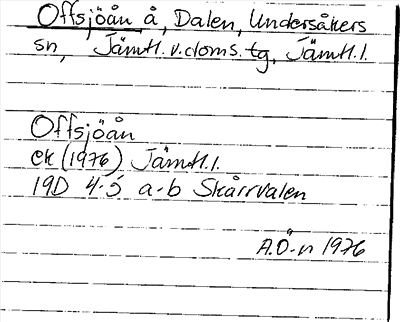 Offsjöån å, Dalen, Undersåkers
sn, Jämtl. v. doms. tg, Jämtl. l.
Offsjöån
ek (1976) Jämtl. l.
19D 4-5 a-b Skårrvalen
A.Ö-n 1976